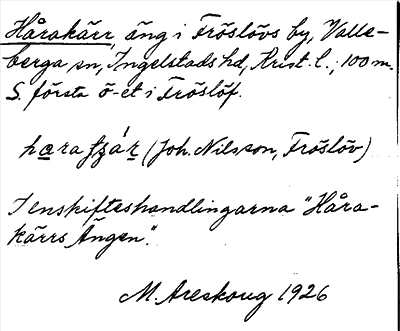 Hårakärr, äng i Fröslövs by, Valle-
berga sn, Ingelstads hd, Krist. l.; 100 m.
S. första ö-et i Fröslöf.
(Joh. Nilsson, Fröslöv)
I enskifteshandlingarna "Håra-
kärrs Ängen".
M. Areskoug 1926